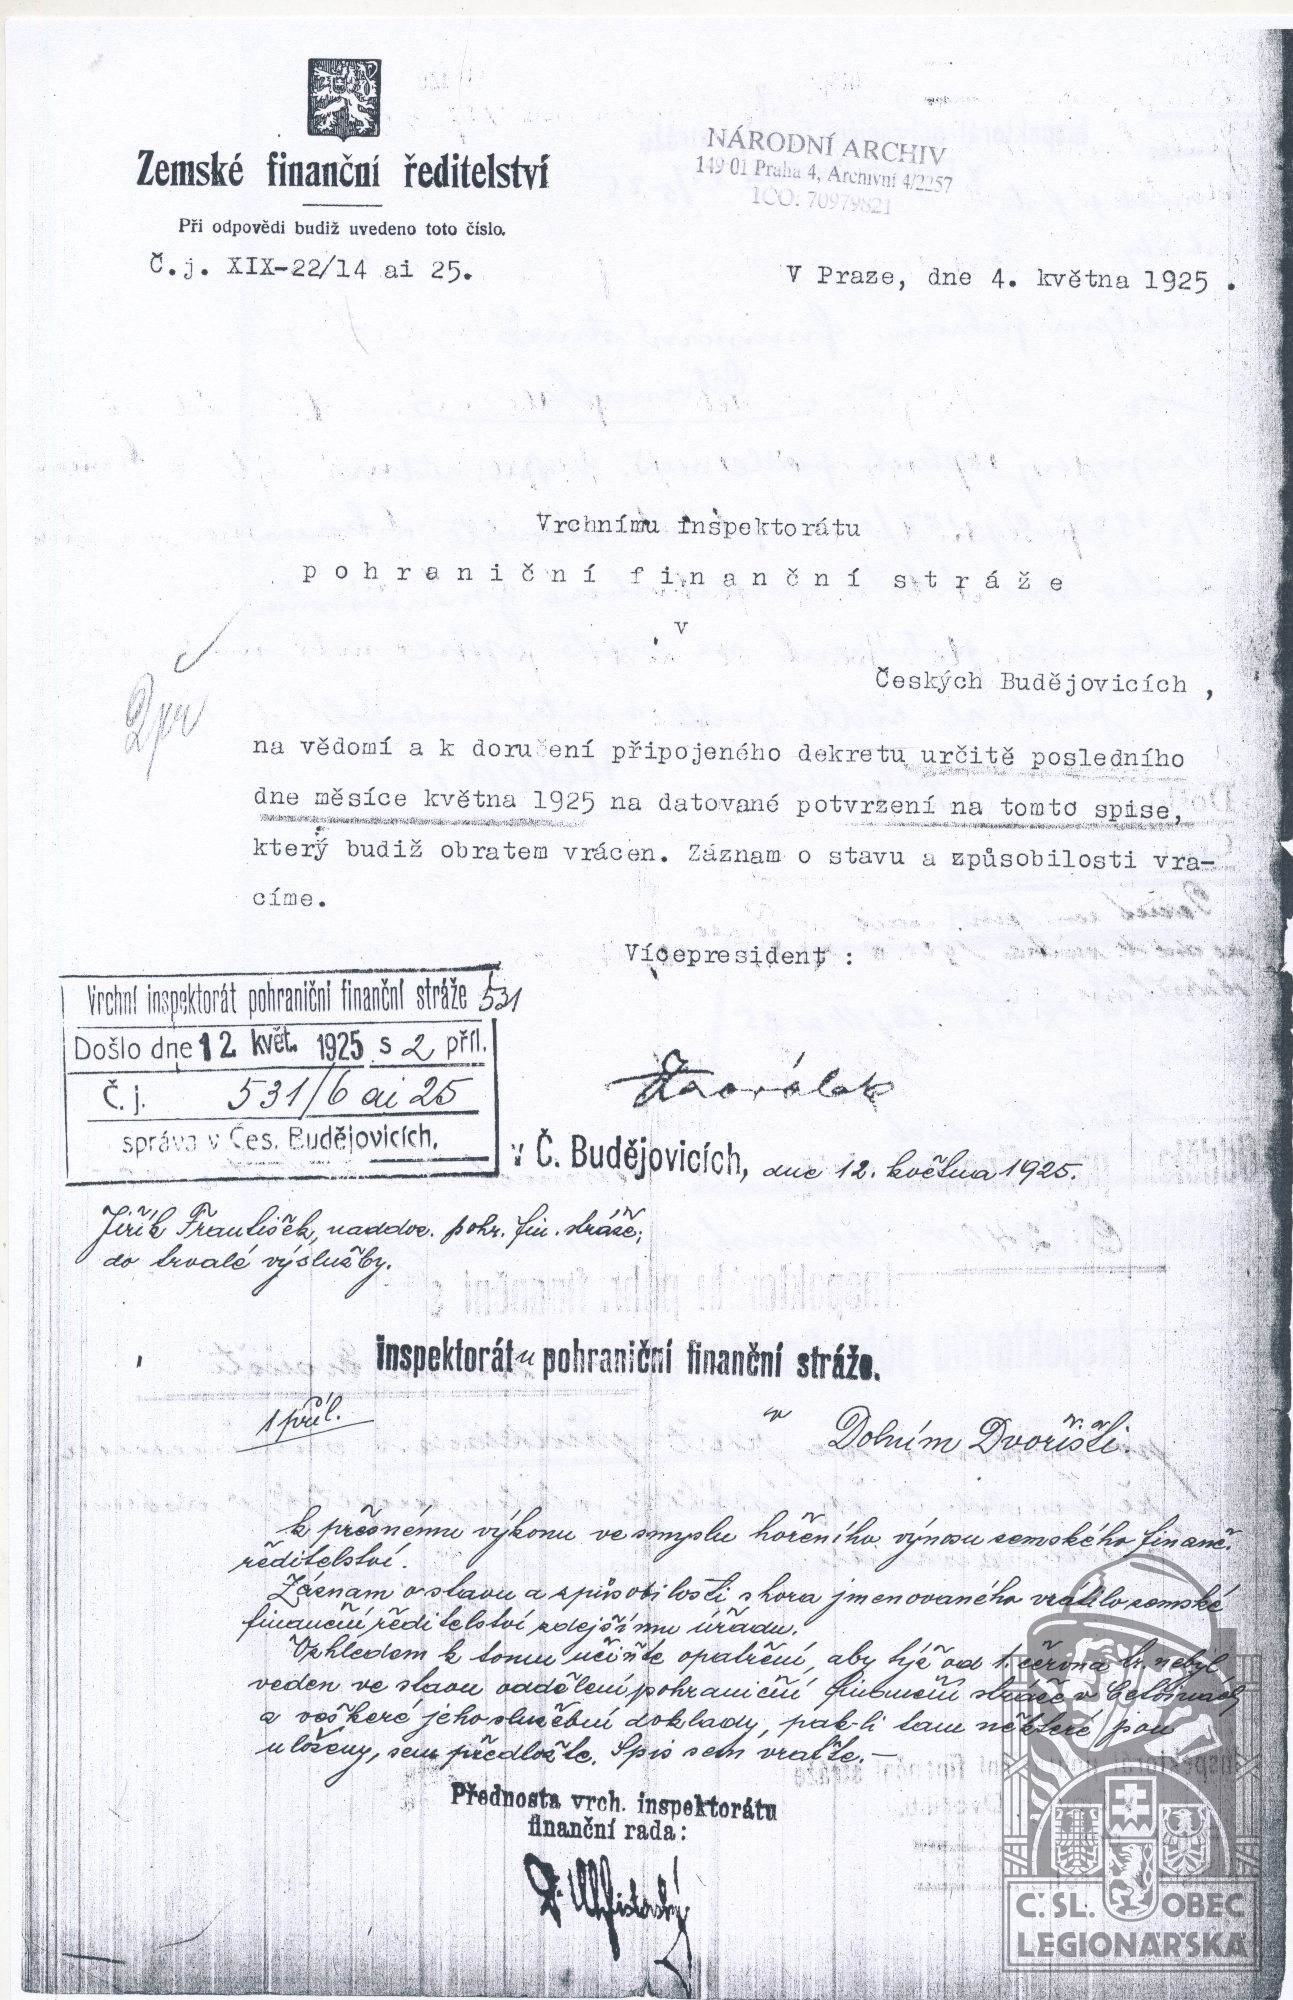 Zemské finanční ředitelství
Při odpovědi budiž uvedeno toto číslo.
Č.j. XIX-22/14 ai 25.
NÁRODNÍ ARCHIV
149 01 Praha 4, Archivní 4/2257
IČO: 70979821
V Praze, dne 4. května 1925 .
Vrchnímu inspektorátu
pohraniční finanční stráže
v
Českých Budějovicích ,
na vědomí a k doručení připojeného dekretu určitě posledního
dne měsíce května 1925 na datované potvrzení na tomto spise,
který budiž obratem vrácen. Záznam o stavu a způsobilosti vra-
címe.
Vícepresident :
Vrchní inspektorát pohraniční finanční stráže 531
Došlo dne 12. květ. 1925 s 2 příl.
Č. j. 531/6 ai 25
správa v Čes. Budějovicích.
v Č. Budějovicích, dne 12. května 1925.
Jiřík František, naddoz. pohr. fin. stráže;
do trvalé výslužby.
inspektorátu pohraniční finanční stráže.
1 příl.
v Dolním Dvořišti.
k přesnému výkonu ve smyslu hořeního výnosu zemského finanč.
ředitelství.
Záznam o stavu a způsobilosti shora jmenovaného vrátilo zemské
finanční ředitelství zdejšímu úřadu.
Vzhledem k tomu učiňte opatření, aby týž od 1. června t.r. nebyl
veden ve stavu oddělení pohraniční finanční stráže v
a veškeré jeho služební doklady, pak-li tam některé jsou
uloženy, sem předložte. Spis sem vraťte.-
Přednosta vrch. inspektorátu
finanční rada:
Č.SL. OBEC
LEGIONÁŘSKÁ